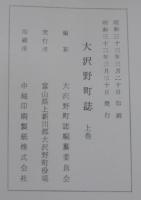 昭和三十三年三月二十日 印刷
昭和三十三年三月三十日 発行
大沢野町誌 上巻
編纂 大沢野町誌編纂委員会
発行所 富山県上新川郡大沢野町役場
印刷所 中越印刷製紙株式会社